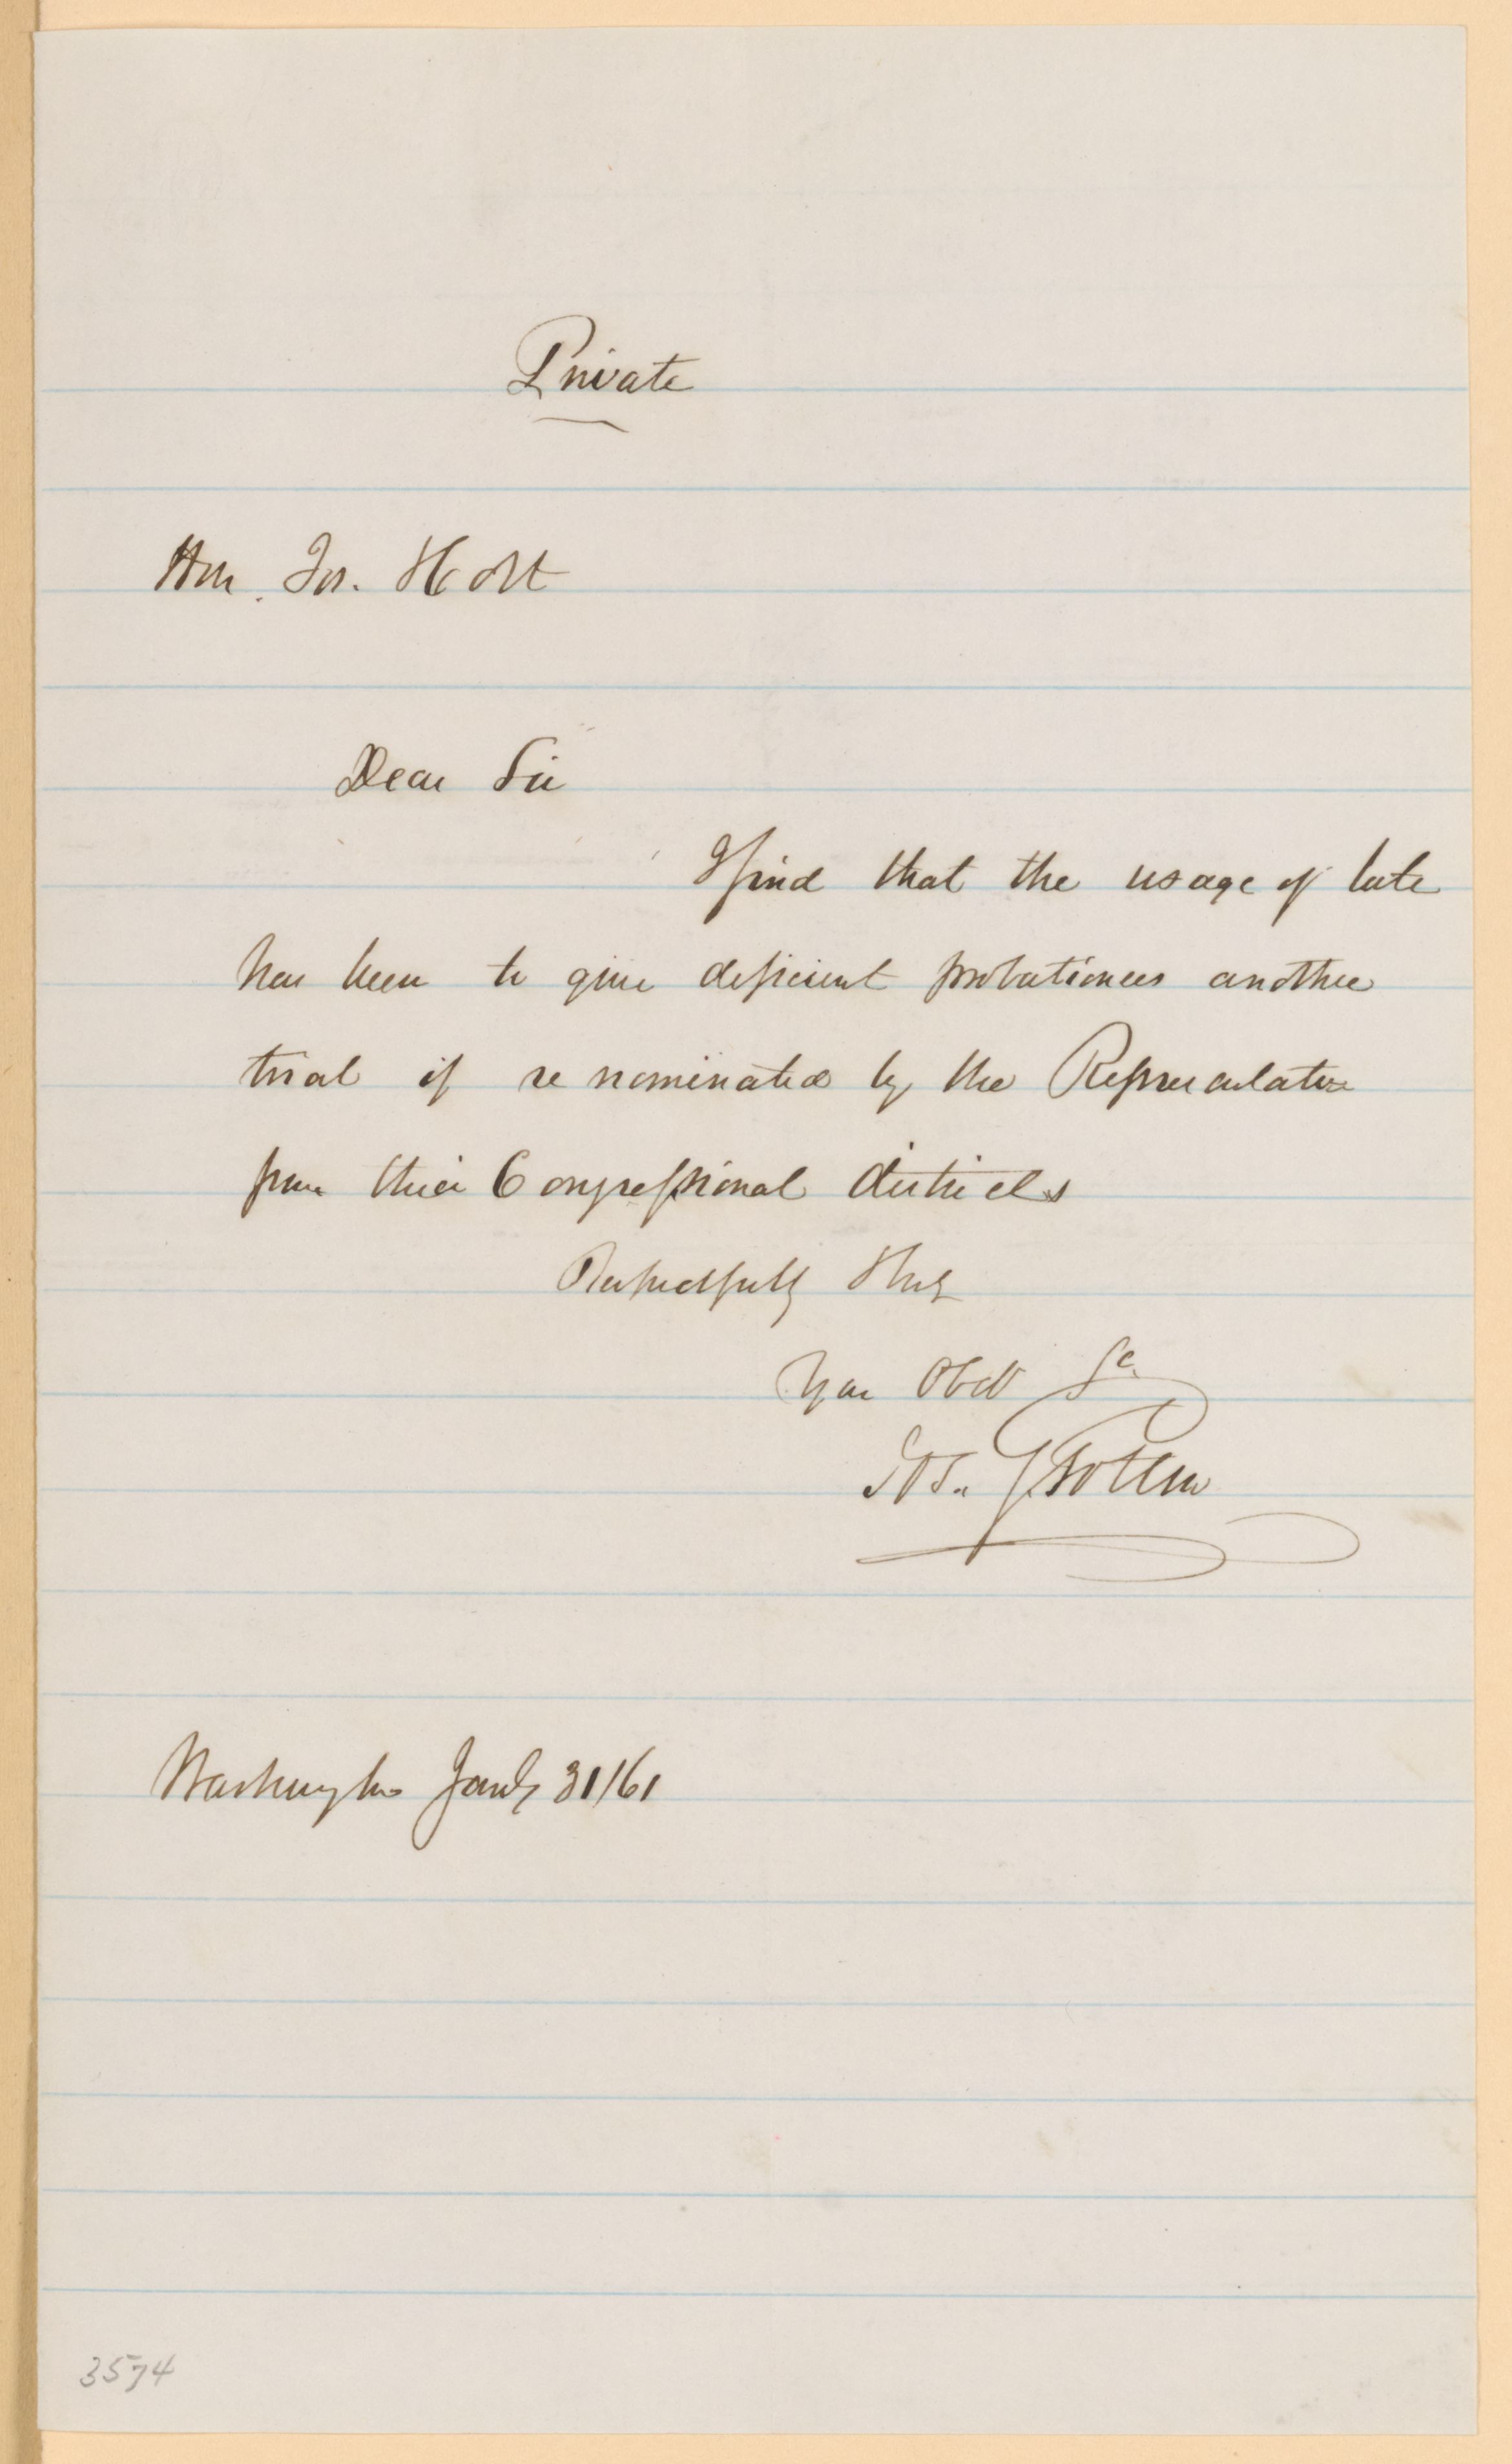 Private
Hon. Jos. Holt
Dear Sir
I find that the usage of late
has been to give deficient probationers another
trial if re nominated by the Representative
from their Congressional districts
Respectfully
Your Obdt
Jos. G Totten
Washington Jany 31/61
3574